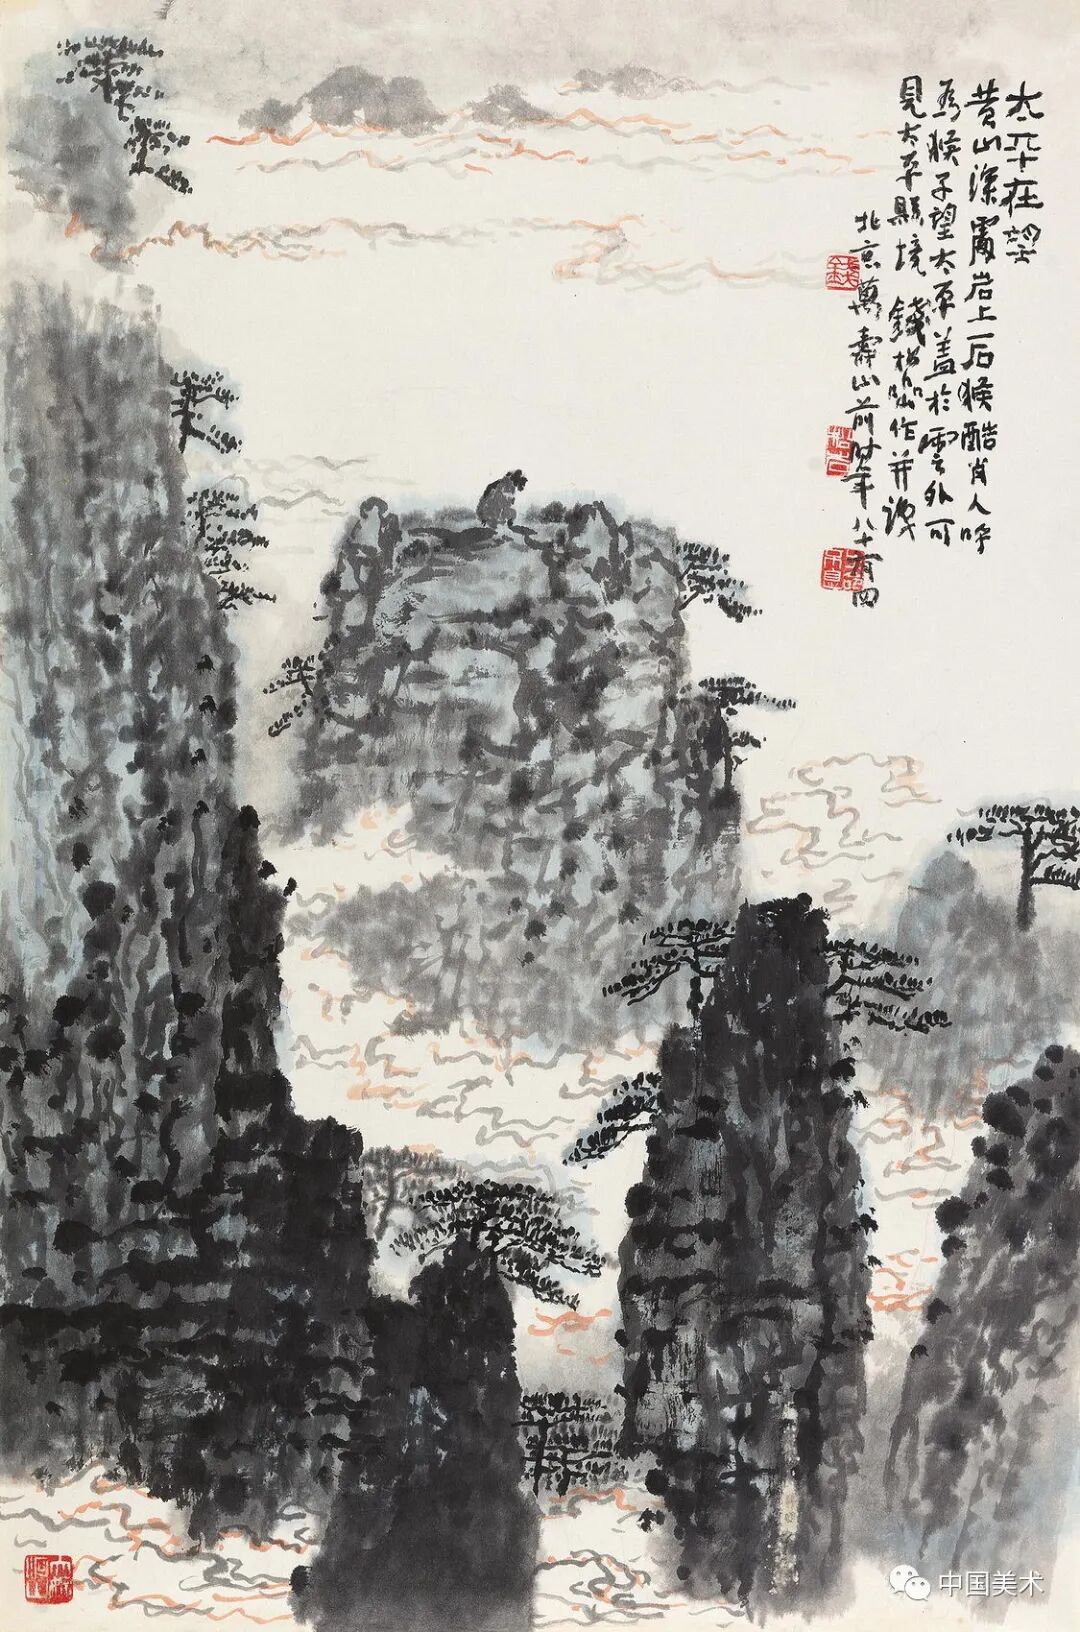 太平在望
黄山深处岩上一石猴酷肖人呼
为猴子望太平盖于云外可
见太平县境 钱松喦作并识
北京万寿山前时年八十有四
钱
中国美术